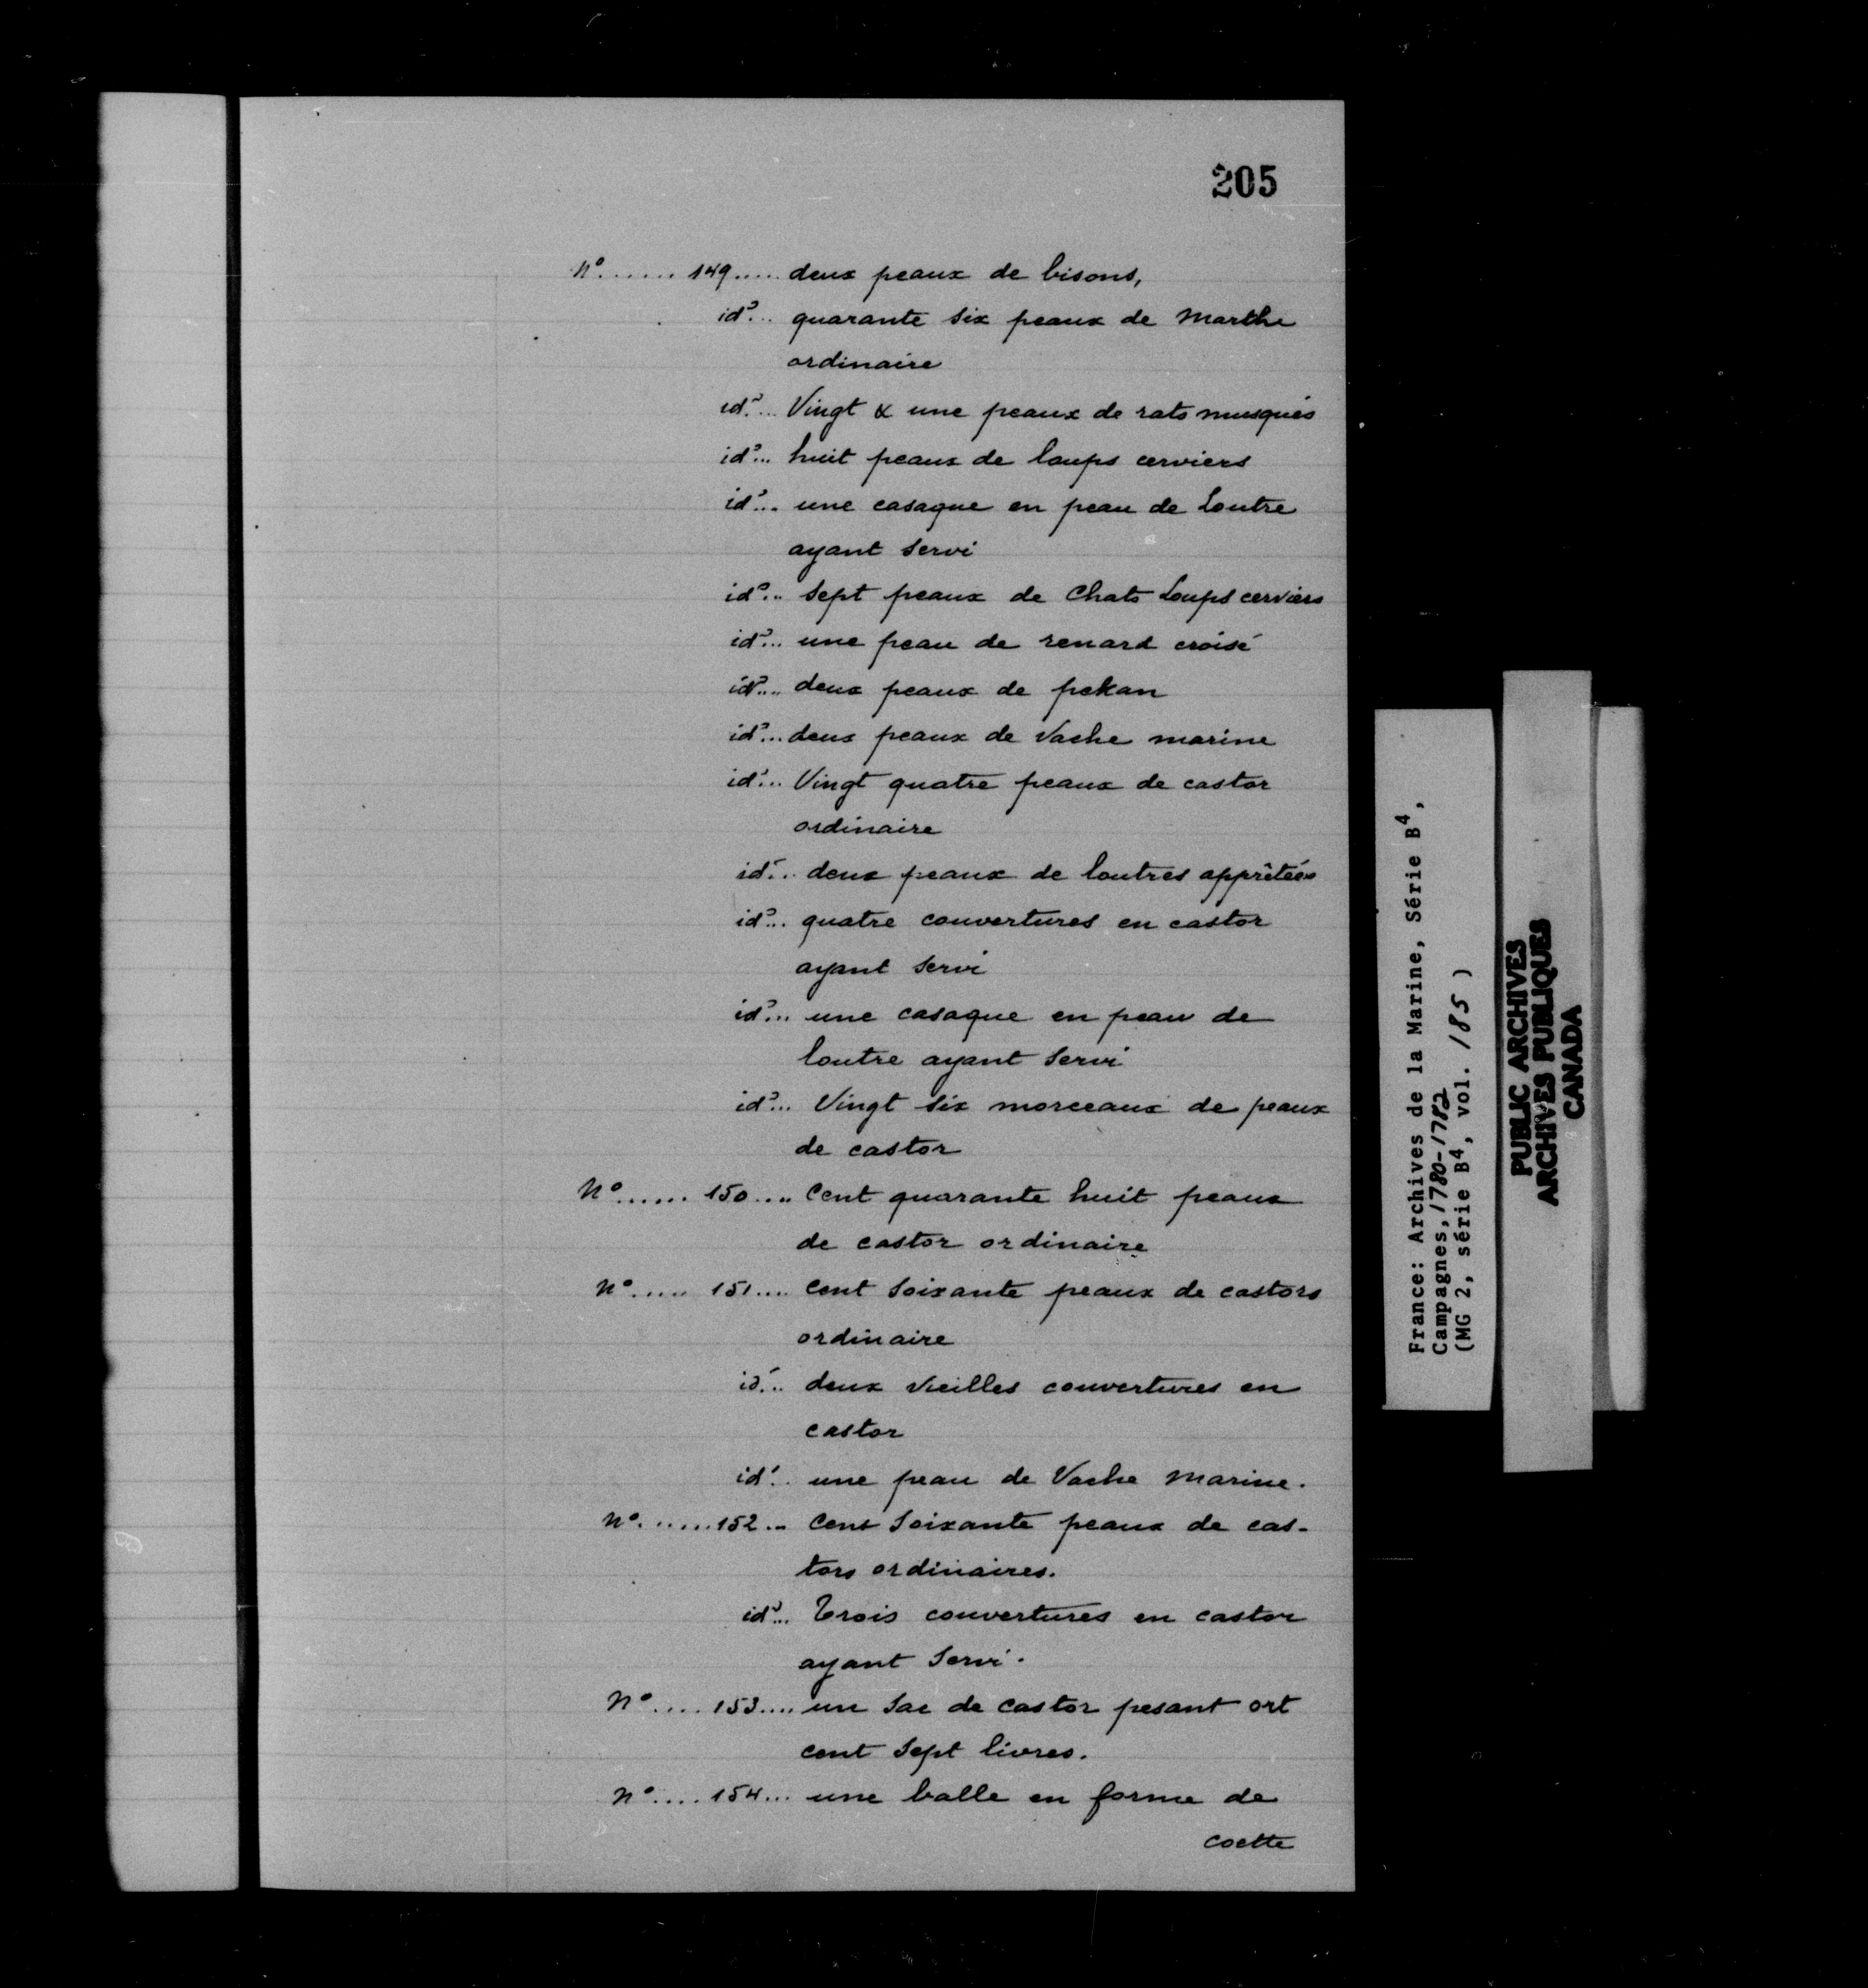 205
No ...... 149 .... deux peaux de bisons,
ido... quarante six peaux de Marthe
ordinaire
ido... Vingt & une peaux de rats musqués
ido... huit peaux de loups cerviers
ido... une casaque en peau de Loutre
ayant servi
ido... sept peaux de Chats Loups cerviers
ido... une peau de renard croisé
ido... deux peaux de pekan
ido... deux peaux de Vache marine
ido... Vingt quatre peaux de castor
ordinaire
ido... deux peaux de loutres apprêtées
ido... quatre couvertures en castor
ayant servi
ido... une casaque en peau de
loutre ayant servi
ido... Vingt six morceaux de peaux
de castor
No ...... 150 .... Cent quarante huit peaux
de castor ordinaire
No ..... 151 .... Cent soixante peaux de castors
ordinaire
ido... deux vieilles couvertures en
castor
ido.. une peau de Vache Marine.
No ...... 152 .. Cent soixante peaux de cas-
tors ordinaires.
ido... Trois couvertures en castor
ayant servi.
No .... 153 .... un sac de castor pesant ort
cent sept livres.
No .... 154 ... une balle en forme de
coette
France: Archives de la Marine, Série B4,
Campagnes, 1780-1782
(MG 2, série B4, vol. 185 )
PUBLIC ARCHIVES
ARCHIVES PUBLIQUES
CANADA